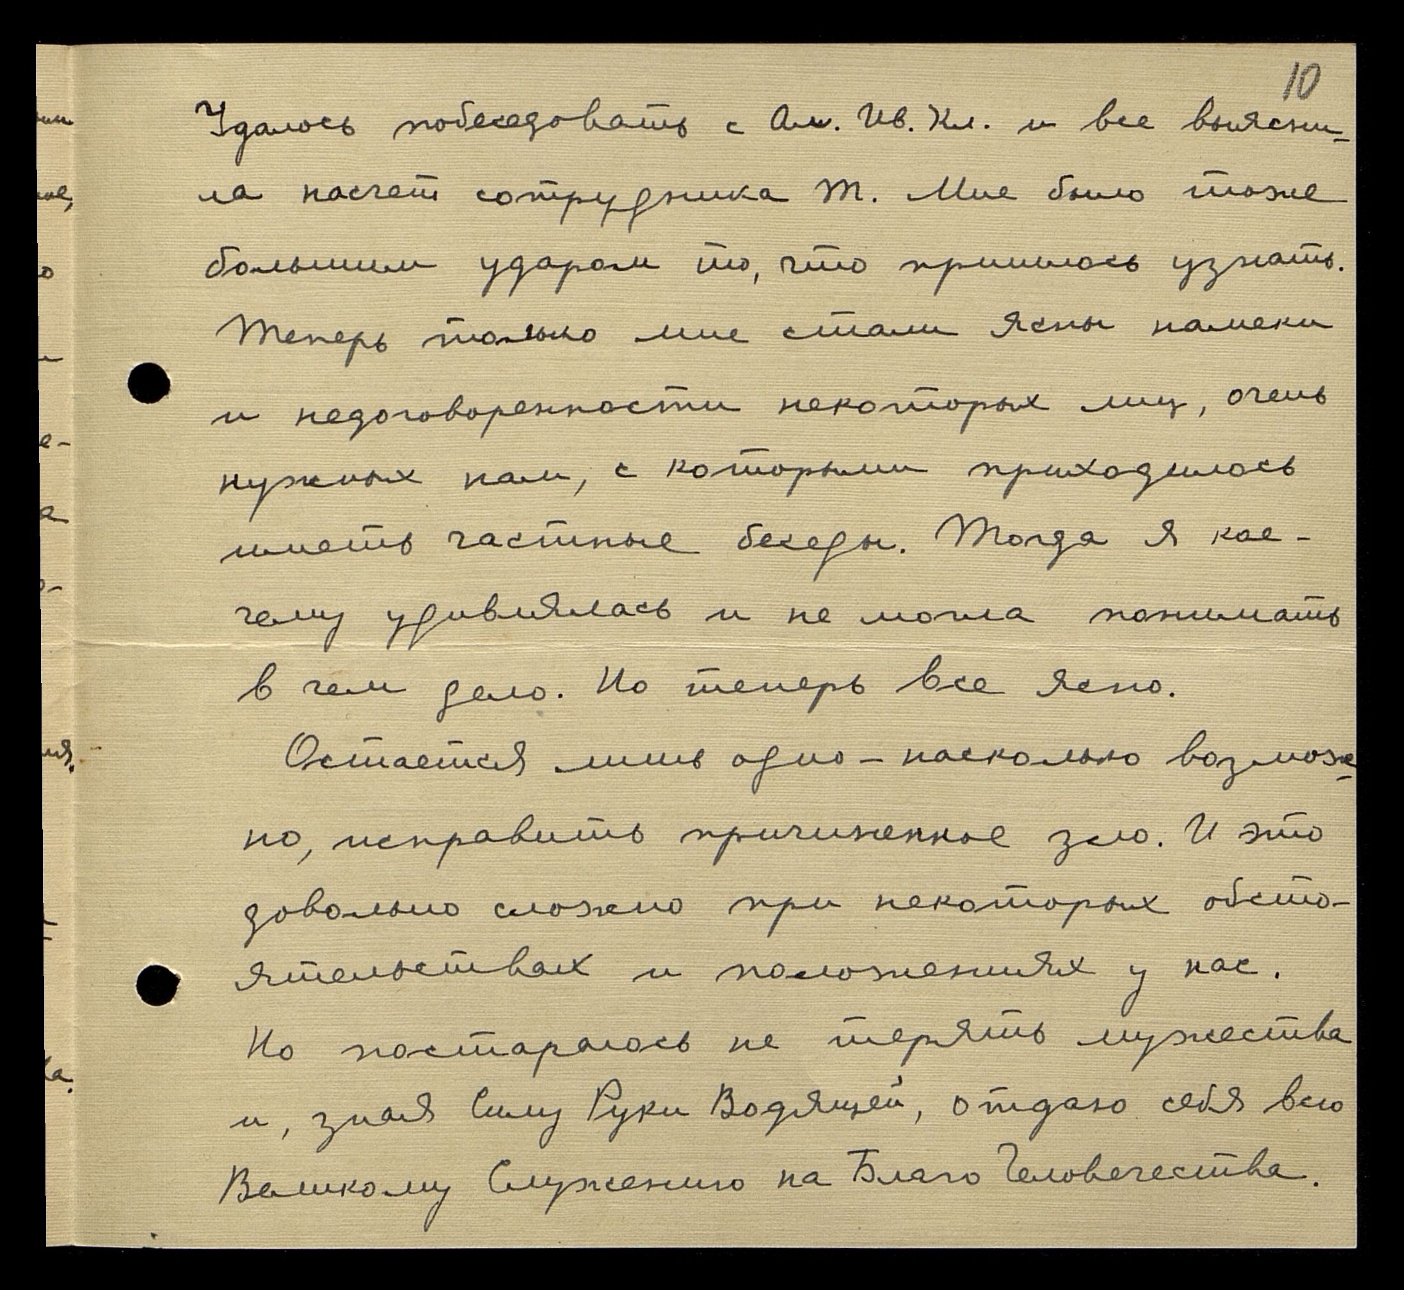 10
Удалось побеседовать с Ал. Ив. Кл. и все выясни-
ла насчет сотрудника Т. Мне было тоже
большим ударом то, что пришлось узнать.
Теперь только мне стали ясны намеки
и недоговоренности некоторых лиц, очень
нужных нам, с которыми приходилось
иметь частные беседы. Тогда я кое-
чему удивлялась и не могла понимать
в чем дело. Но теперь все ясно.
Остается лишь одно – насколько возмож-
но, исправить причиненное зло. И это
довольно сложно при некоторых обсто-
ятельствах и положениях у нас.
Но постараюсь не терять мужества
и, зная Силу Руки Водящей, отдаю себя всю
Великому Служению на Благо Человечества.